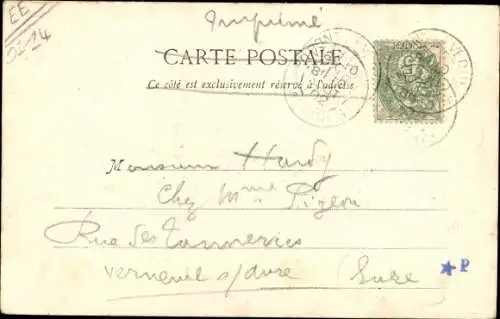 EE
Imprimé
CARTE POSTALE
Ce côté est exclusivement réservé à l'adresse
Monsieur Hardy
Chez Mme Pigeon
Rue des Tanneries
Verneuil s/avre (Eure)
P